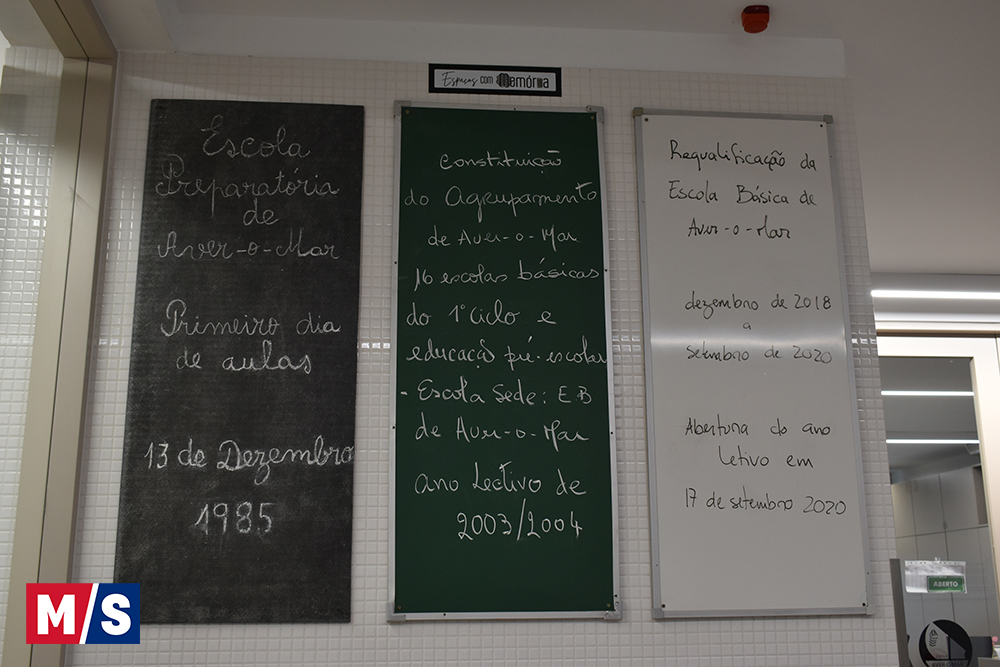 Espaços com Memória
Escola
Preparatória
de
Aver-o-Mar
Primeiro dia
de aulas
13 de Dezembro
1985
Constituição
do Agrupamento
de Aver-o-Mar
16 escolas básicas
do 1º Ciclo e
educação pré-escolar
- Escola Sede: E.B
de Aver-o-Mar
ano lectivo de
2003/2004
Requalificação da
Escola Básica de
Aver-o-Mar
dezembro de 2018
a
setembro de 2020
Abertura do ano
letivo em
17 de setembro 2020
ABERTO
M/S